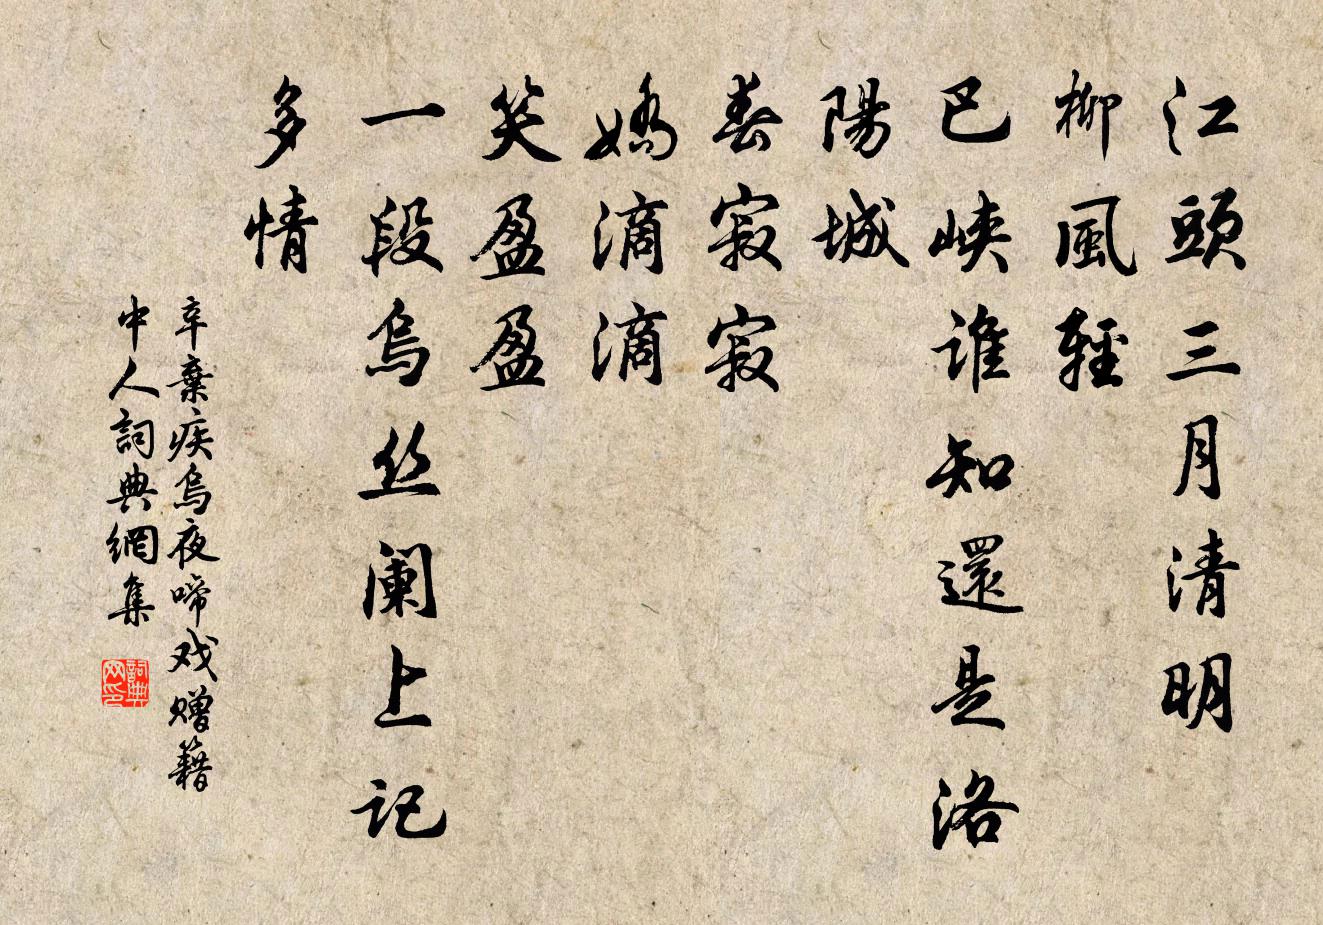 江頭三月清明
柳風輕
巴峽誰知還是洛
陽城
春寂寂
嬌滴滴
笑盈盈
一段烏丝阑上记
多情
辛棄疾烏夜啼戏赠籍
中人詞典網集
詞典网印